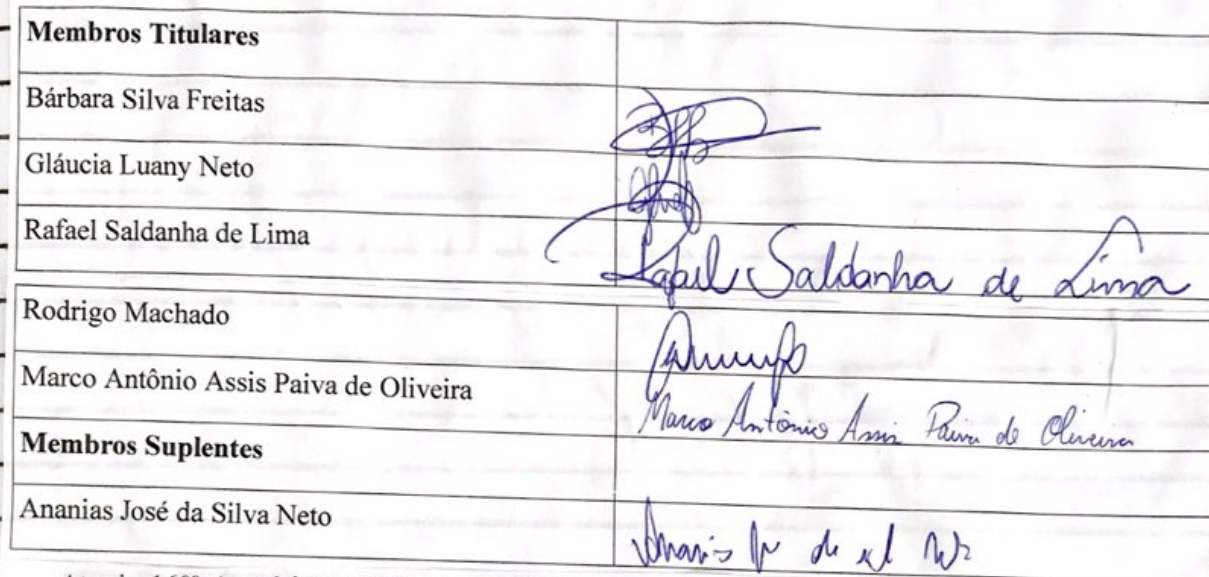 Membros Titulares
Bárbara Silva Freitas
Gláucia Luany Neto
Rafael Saldanha de Lima Rafael Saldanha de Lima
Rodrigo Machado
Marco Antônio Assis Paiva de Oliveira Marco Antônio Assis Paiva de Oliveira
Membros Suplentes
Ananias José da Silva Neto Ananias